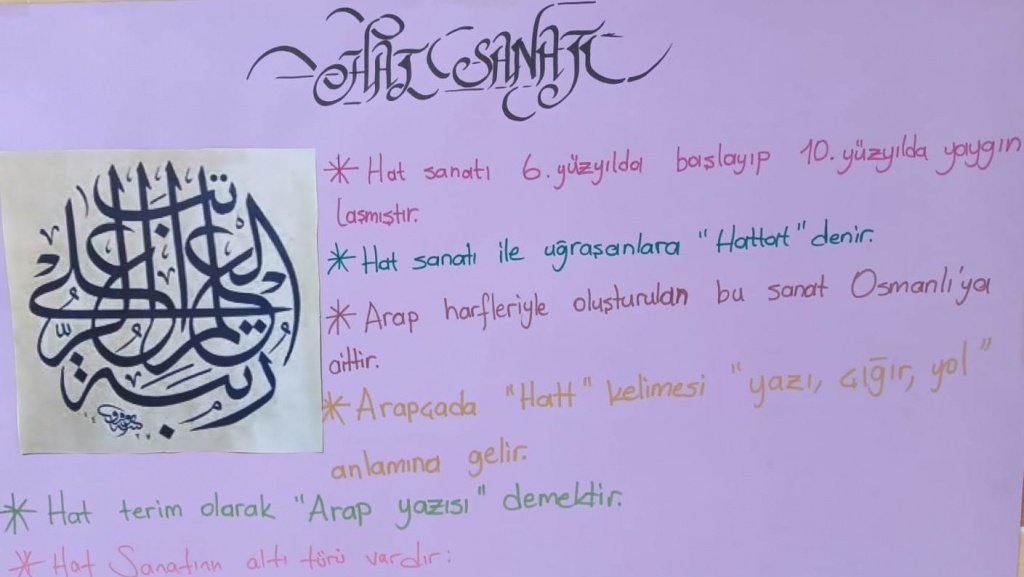 HAT SANATI
* Hat sanatı 6.yüzyılda başlayıp 10.yüzyılda yaygın
laşmıştır.
* Hat sanatı ile uğraşanlara "Hattat" denir.
* Arap harfleriyle oluşturulan bu sanat Osmanlı'ya
aittir.
* Arapçada "Hatt" kelimesi "yazı, çığır, yol"
anlamına gelir.
* Hat terim olarak "Arap yazısı" demektir.
* Hat Sanatınn altı türü vardır:
رتبة العلم اعلى الرتب